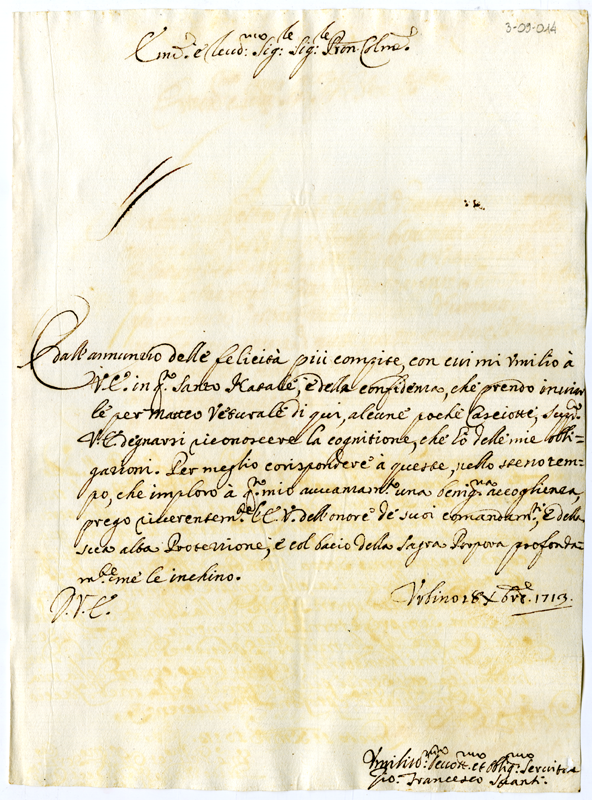 3-09-014
Em.o e Reud.mo Sig.le Sig.le Pron Colmo
E dall'annunzio delle felicità più compite, con cui mi vmilio à
V.E. in q.o Santo Natale, e della confidenza, che prendo inuiar
le per Matteo Veturale di qui, alcune poche casciotte, supp.o
V.E. degnarsi riconoscere la cognitione, che hò delle mie obli=
gazioni. Per meglio corispondere à queste, nello stesso tem=
po, che imploro à q.o mio auuanzam.to una benig.na accoglienza,
prego riuerentem.te l'E.V. dell'onore de suoi comandam.ti, E della
sua alta Protezzione, e col bacio della Sagra Porpora profonda
m.te me le inchino.
D.V.E. Vrbino 18 Xbre. 1713.
Vmiliss.mo Deuot.mo et Oblig.mo Seruitre
Gio. Francesco